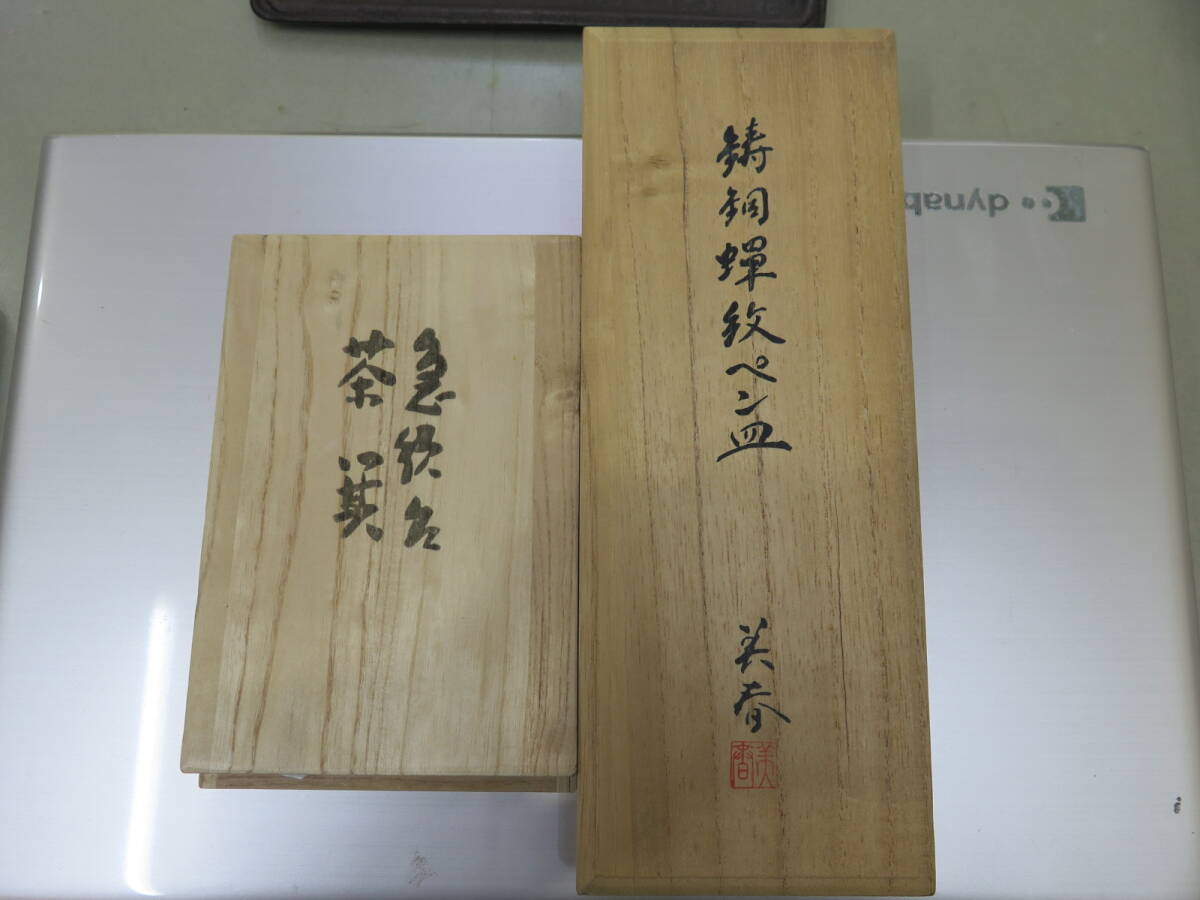 鋳銅蟬紋ペン皿
美春
美春
急須台
茶箕
dynab